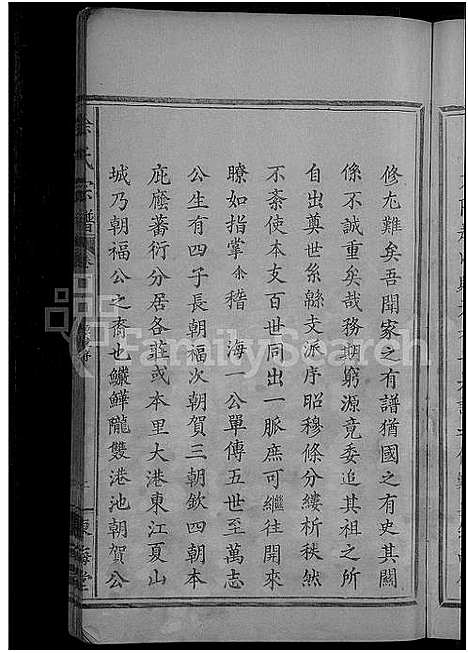 修尤難矣吾聞家之有譜猶國之有史其關
係不誠重矣哉務期窮源竟委追其祖之所
自出奠世系緜支派序昭穆條分縷析秩然
不紊使本支百世同出一脈庶可繼往開來
瞭如指掌余稽海一公單傳五世至萬志
公生有四子長朝福次朝賀三朝欽四朝本
庇廕蕃衍分居各莊或本里大港東江夏山
城乃朝福公之裔也鱖鱓隴雙港池朝賀公
徐氏宗譜
東海堂
FamilySearch